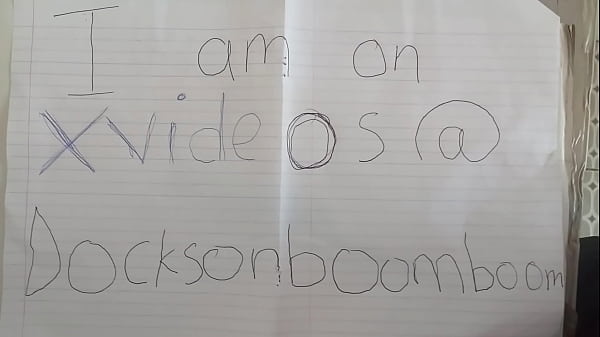 I am on
Xvideos @
Docksonboomboom